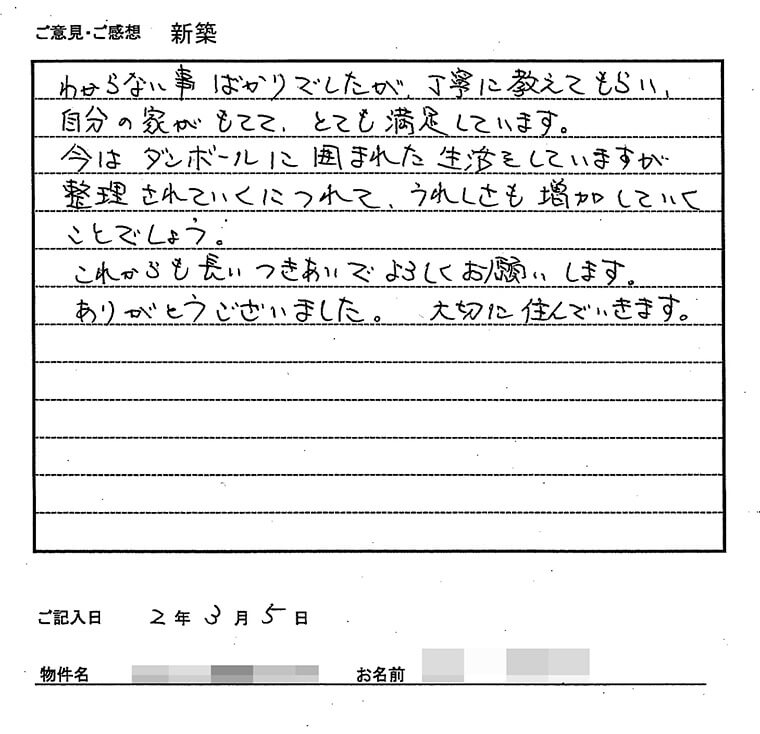 ご意見・ご感想 新築
わからない事ばかりでしたが、丁寧に教えてもらい、
自分の家がもてて、とても満足しています。
今はダンボールに囲まれた生活をしていますが
整理されていくにつれて、うれしさも増加していく
ことでしょう。
これからも長いつきあいでよろしくお願いします。
ありがとうございました。 大切に住んでいきます。
ご記入日 2年3月5日
物件名 お名前